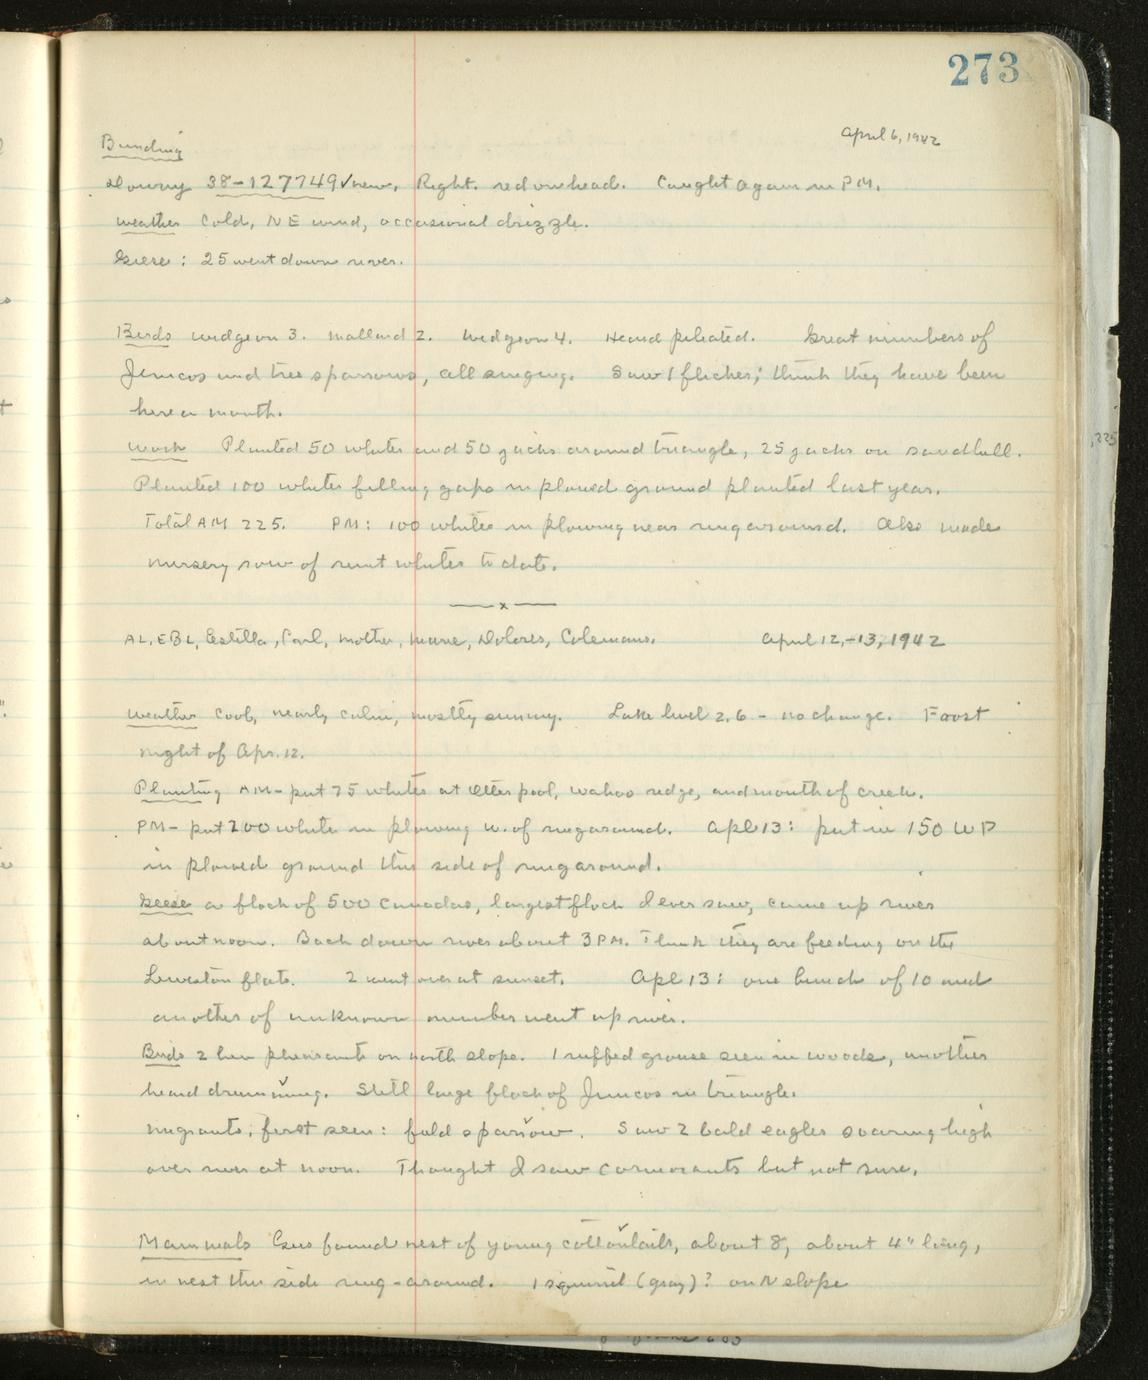 273
April 6, 1942
Banding
Downy 38-127749 ✓ new. Right. red on head. Caught again in PM.
Weather Cold, NE wind, occasional drizzle.
Geese: 25 went down river.
Birds widgeon 3. mallard 2. Widgeon 4. Heard pileated. Great numbers of
Juncos and tree sparrows, all singing. Saw 1 flicker; think they have been
here a month.
Work Planted 50 whites and 50 jacks around triangle, 25 jacks on sandhill.
Planted 100 whites filling gaps in plowed ground planted last year.
Total AM 225. PM: 100 whites in plowing near ringaround. Also made
nursery row of runt whites to date.
—x—
AL, EBL, Estella, Carl, mother, Marie, Dolores, Colemans. April 12,-13, 1942
Weather Cool, nearly calm, mostly sunny. Lake level 2.6 - no change. Frost
night of Apr. 12.
Planting AM- put 75 whites at Otter pool, wahoo ridge, and mouth of creek.
PM- put 200 whites in plowing w. of ringaround. Apl 13: put in 150 WP
in plowed ground this side of ringaround.
Geese a flock of 500 Canadas, largest flock I ever saw, came up river
about noon. Back down river about 3 PM. Think they are feeding on the
Lewiston flats. 2 went over at sunset. Apl 13: one bunch of 10 and
another of unknown number went up river.
Birds 2 hen pheasants on north slope. 1 ruffed grouse seen in woods, another
heard drumming. Still large flock of Juncos in triangle.
Migrants, first seen: field sparrow. Saw 2 bald eagles soaring high
over river at noon. Thought I saw cormorants but not sure.
Mammals Gus found nest of young cottontails, about 8, about 4" long,
in nest this side ring-around. 1 squirrel (gray)? on N slope